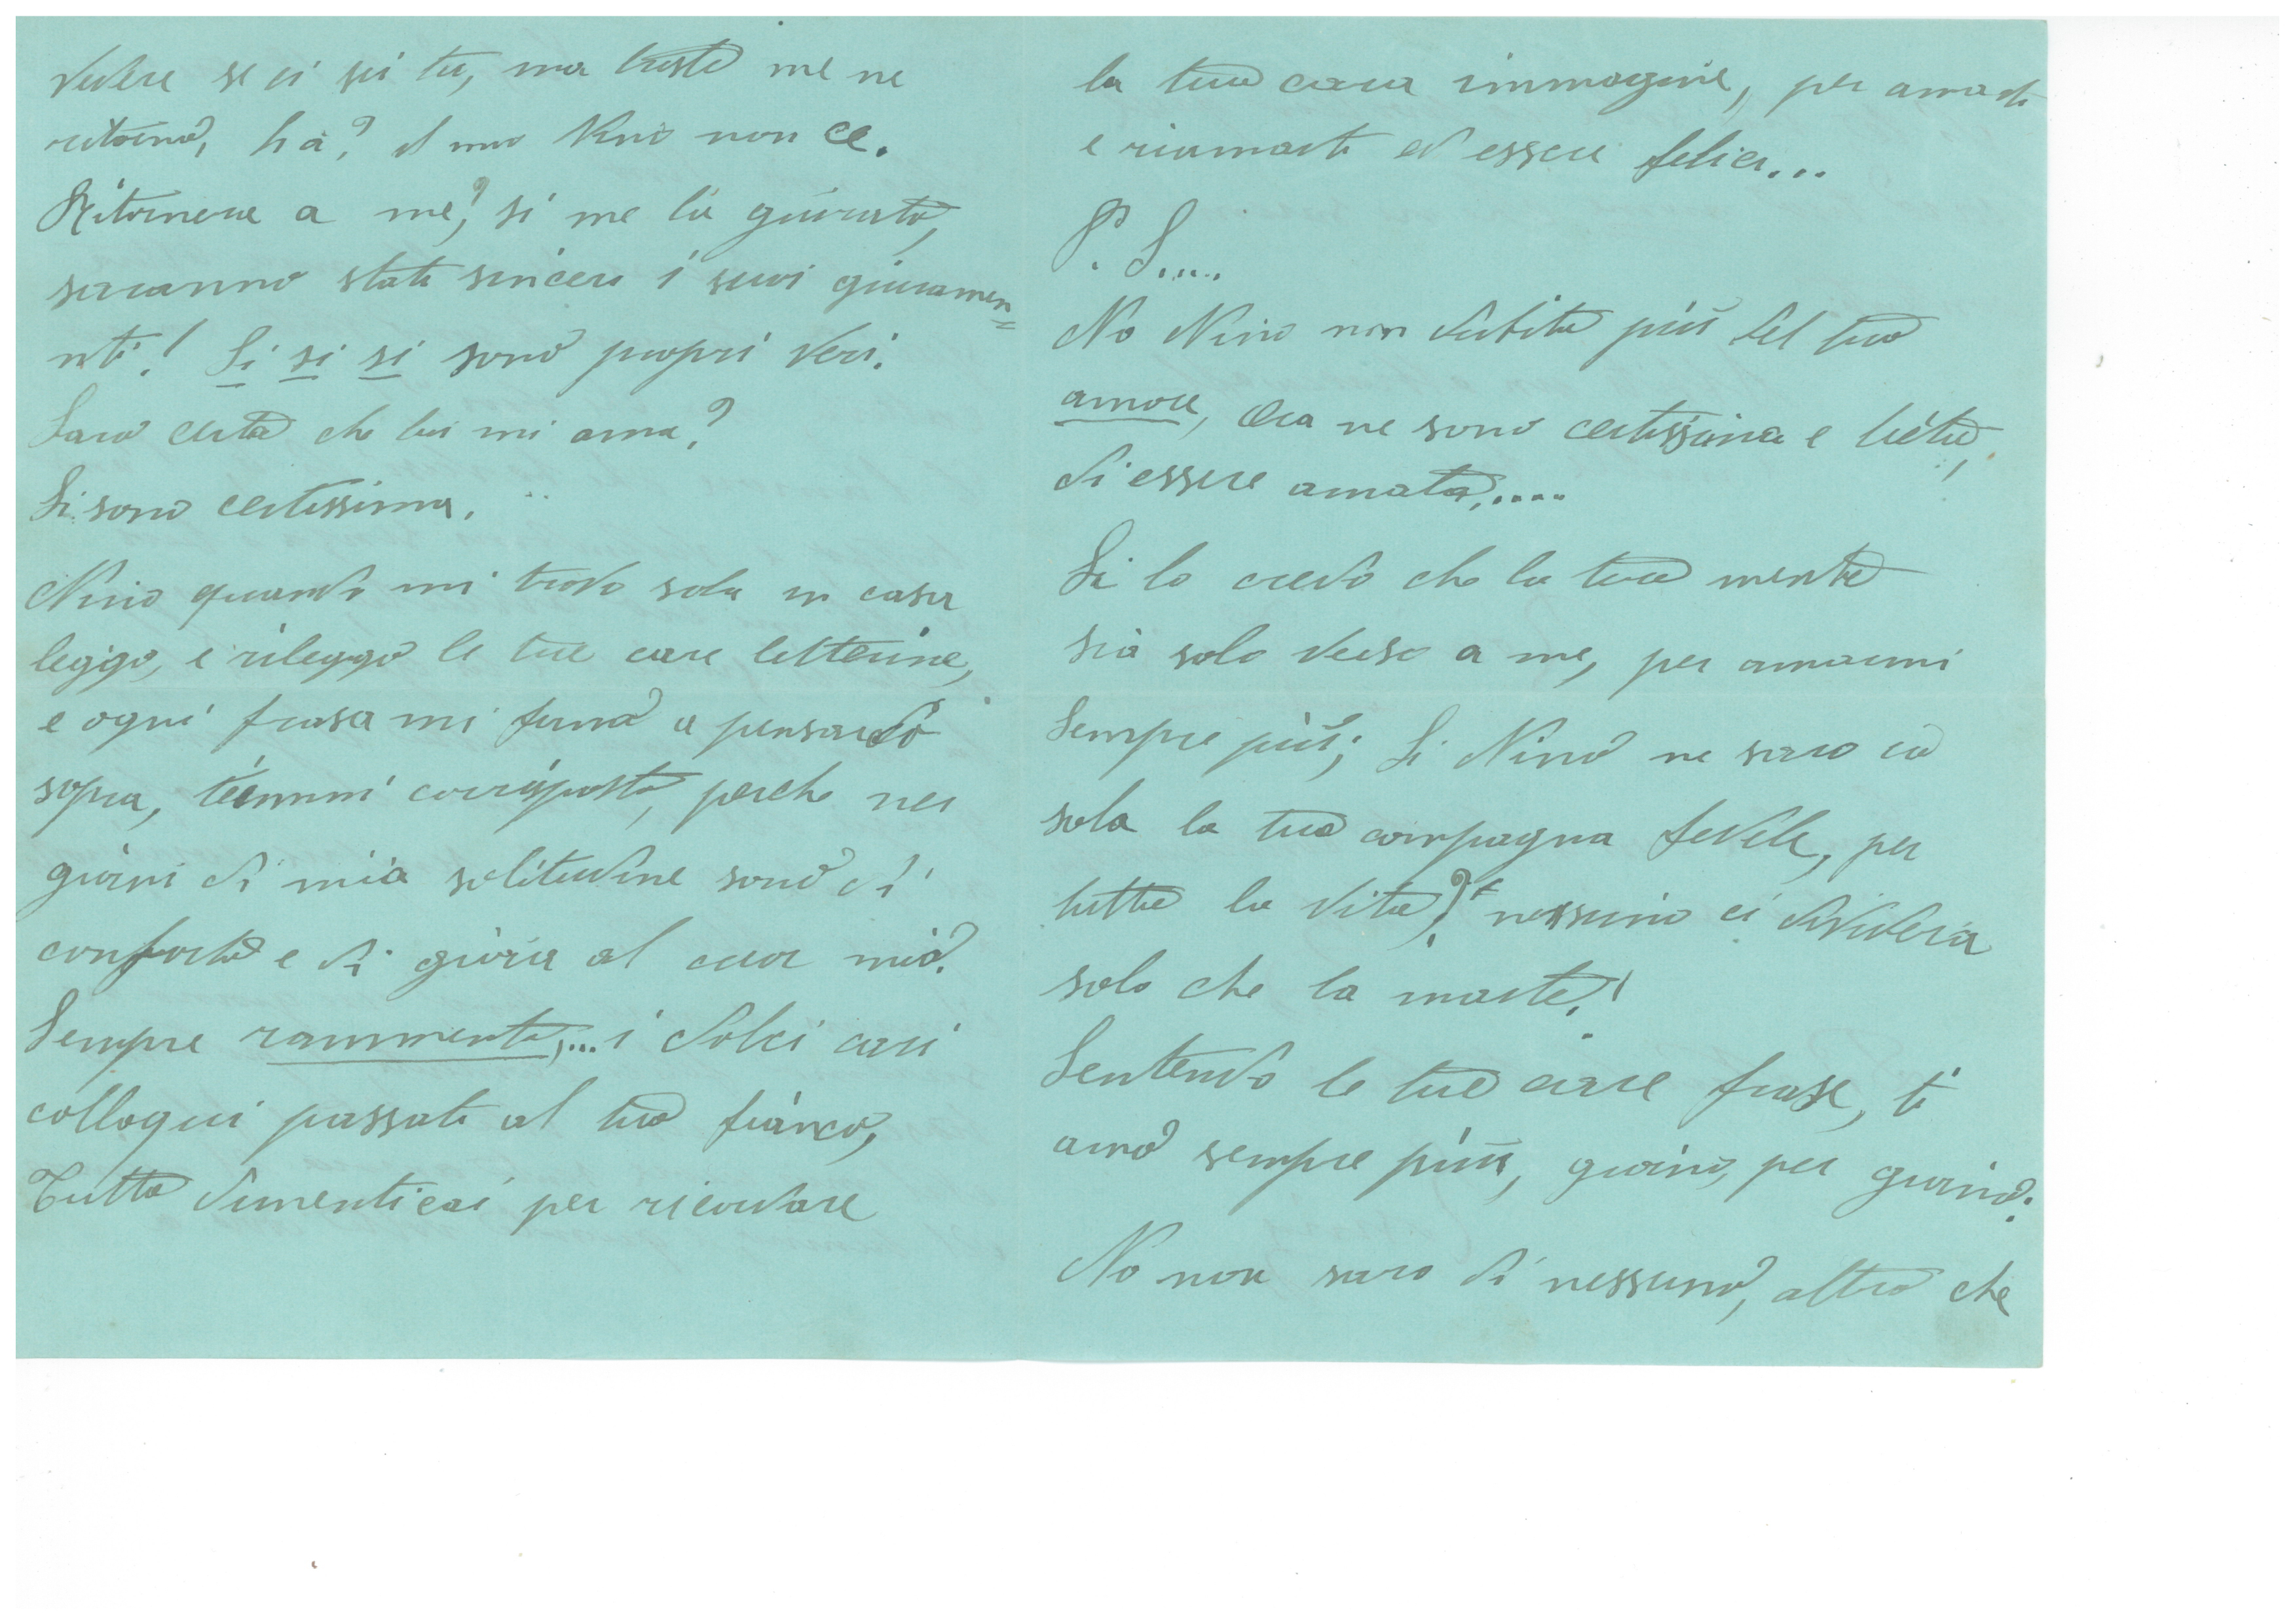 vedere se ci sei tu, ma triste me ne
ritorno, ha? il mio Nino non ce.
Ritornera a me? si me la giurato,
saranno stati sinceri i suoi giuramen=
nti! Si si si sono propri veri.
Saro certa che lui mi ama?
Si sono certissima.
Nino quando mi trovo sola in casa
leggo, e rileggo le tue care letterine,
e ogni frasa mi fermo a pensarci
sopra, tiemmi corrisposta, perche nei
giorni di mia solitudine sono di
conforto e di gioia al cuor mio.
Sempre rammento,... i dolci cari
colloqui passati al tuo fianco,
Tutto dimenticai per ricordare
la tua cara immagine, per amarti
e riamarti ed essere felici...
P. S....
No Nino non dubito più del tuo
amore, Ora ne sono certissima e lieta,
di essere amata,....
Si lo credo che la tua mente
sia solo verso a me, per amarmi
Sempre più; Si Nino ne saro io
sola la tua compagna fedele, per
tutta la vita? nessuno ci dividera
solo che la morte!
Sentendo le tue care frase, ti
amo sempre più, giorno, per giorno.
No non saro di nessuno, altro che